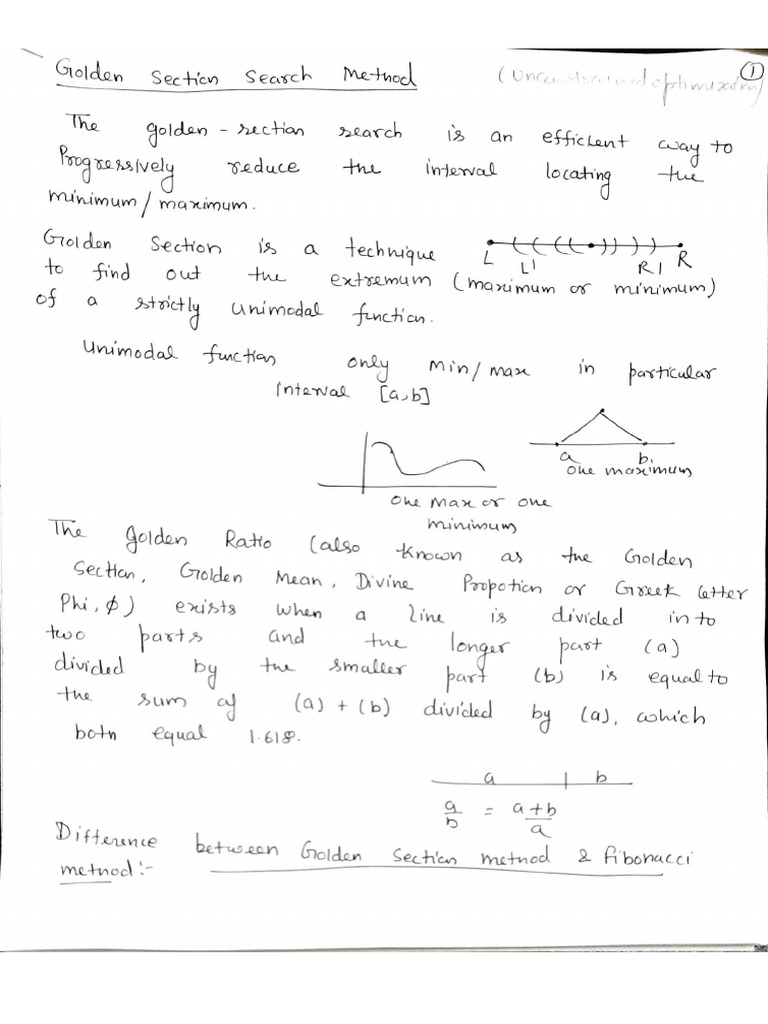 Golden Section Search Method (Unconstrained optimization) 1
The golden-section search is an efficient way to
Progressively reduce the interval locating the
minimum/maximum.
Golden Section is a technique
L L' R1 R
to find out the extremum (maximum or minimum)
of a strictly unimodal function.
Unimodal function only min/max in particular
interval [a,b]
a b.
one maximum
one max or one
minimum
The golden Ratio (also known as the Golden
Section, Golden Mean, Divine Propotion or Greek letter
Phi, ϕ) exists when a line is divided in to
two parts and the longer part (a)
divided by the smaller part (b) is equal to
the sum of (a) + (b) divided by (a), which
both equal 1.618.
a b
a/b = a+b/a
Difference between Golden Section method & fibonacci
method:-